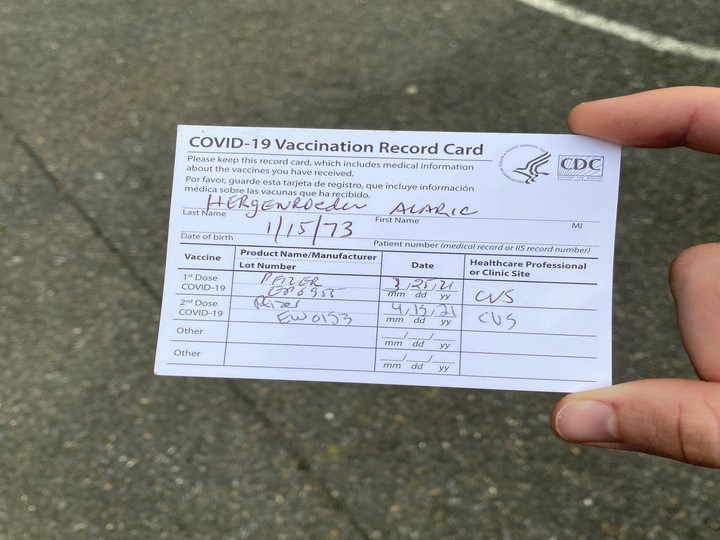 COVID-19 Vaccination Record Card
CDC
Please keep this record card, which includes medical information
about the vaccines you have received.
Por favor, guarde esta tarjeta de registro, que incluye información
médica sobre las vacunas que ha recibido.
HERgenRoeder ALARIC
Last Name First Name MI
1/15/73
Date of birth Patient number (medical record or IIS record number)
Vaccine Product Name/Manufacturer Date Healthcare Professional
Lot Number or Clinic Site
1st Dose PFIZER 3/25/21 CVS
COVID-19 mm dd yy
2nd Dose Pfizer 4/15/21 CVS
COVID-19 EW0153 mm dd yy
Other __/__/__
mm dd yy
Other __/__/__
mm dd yy